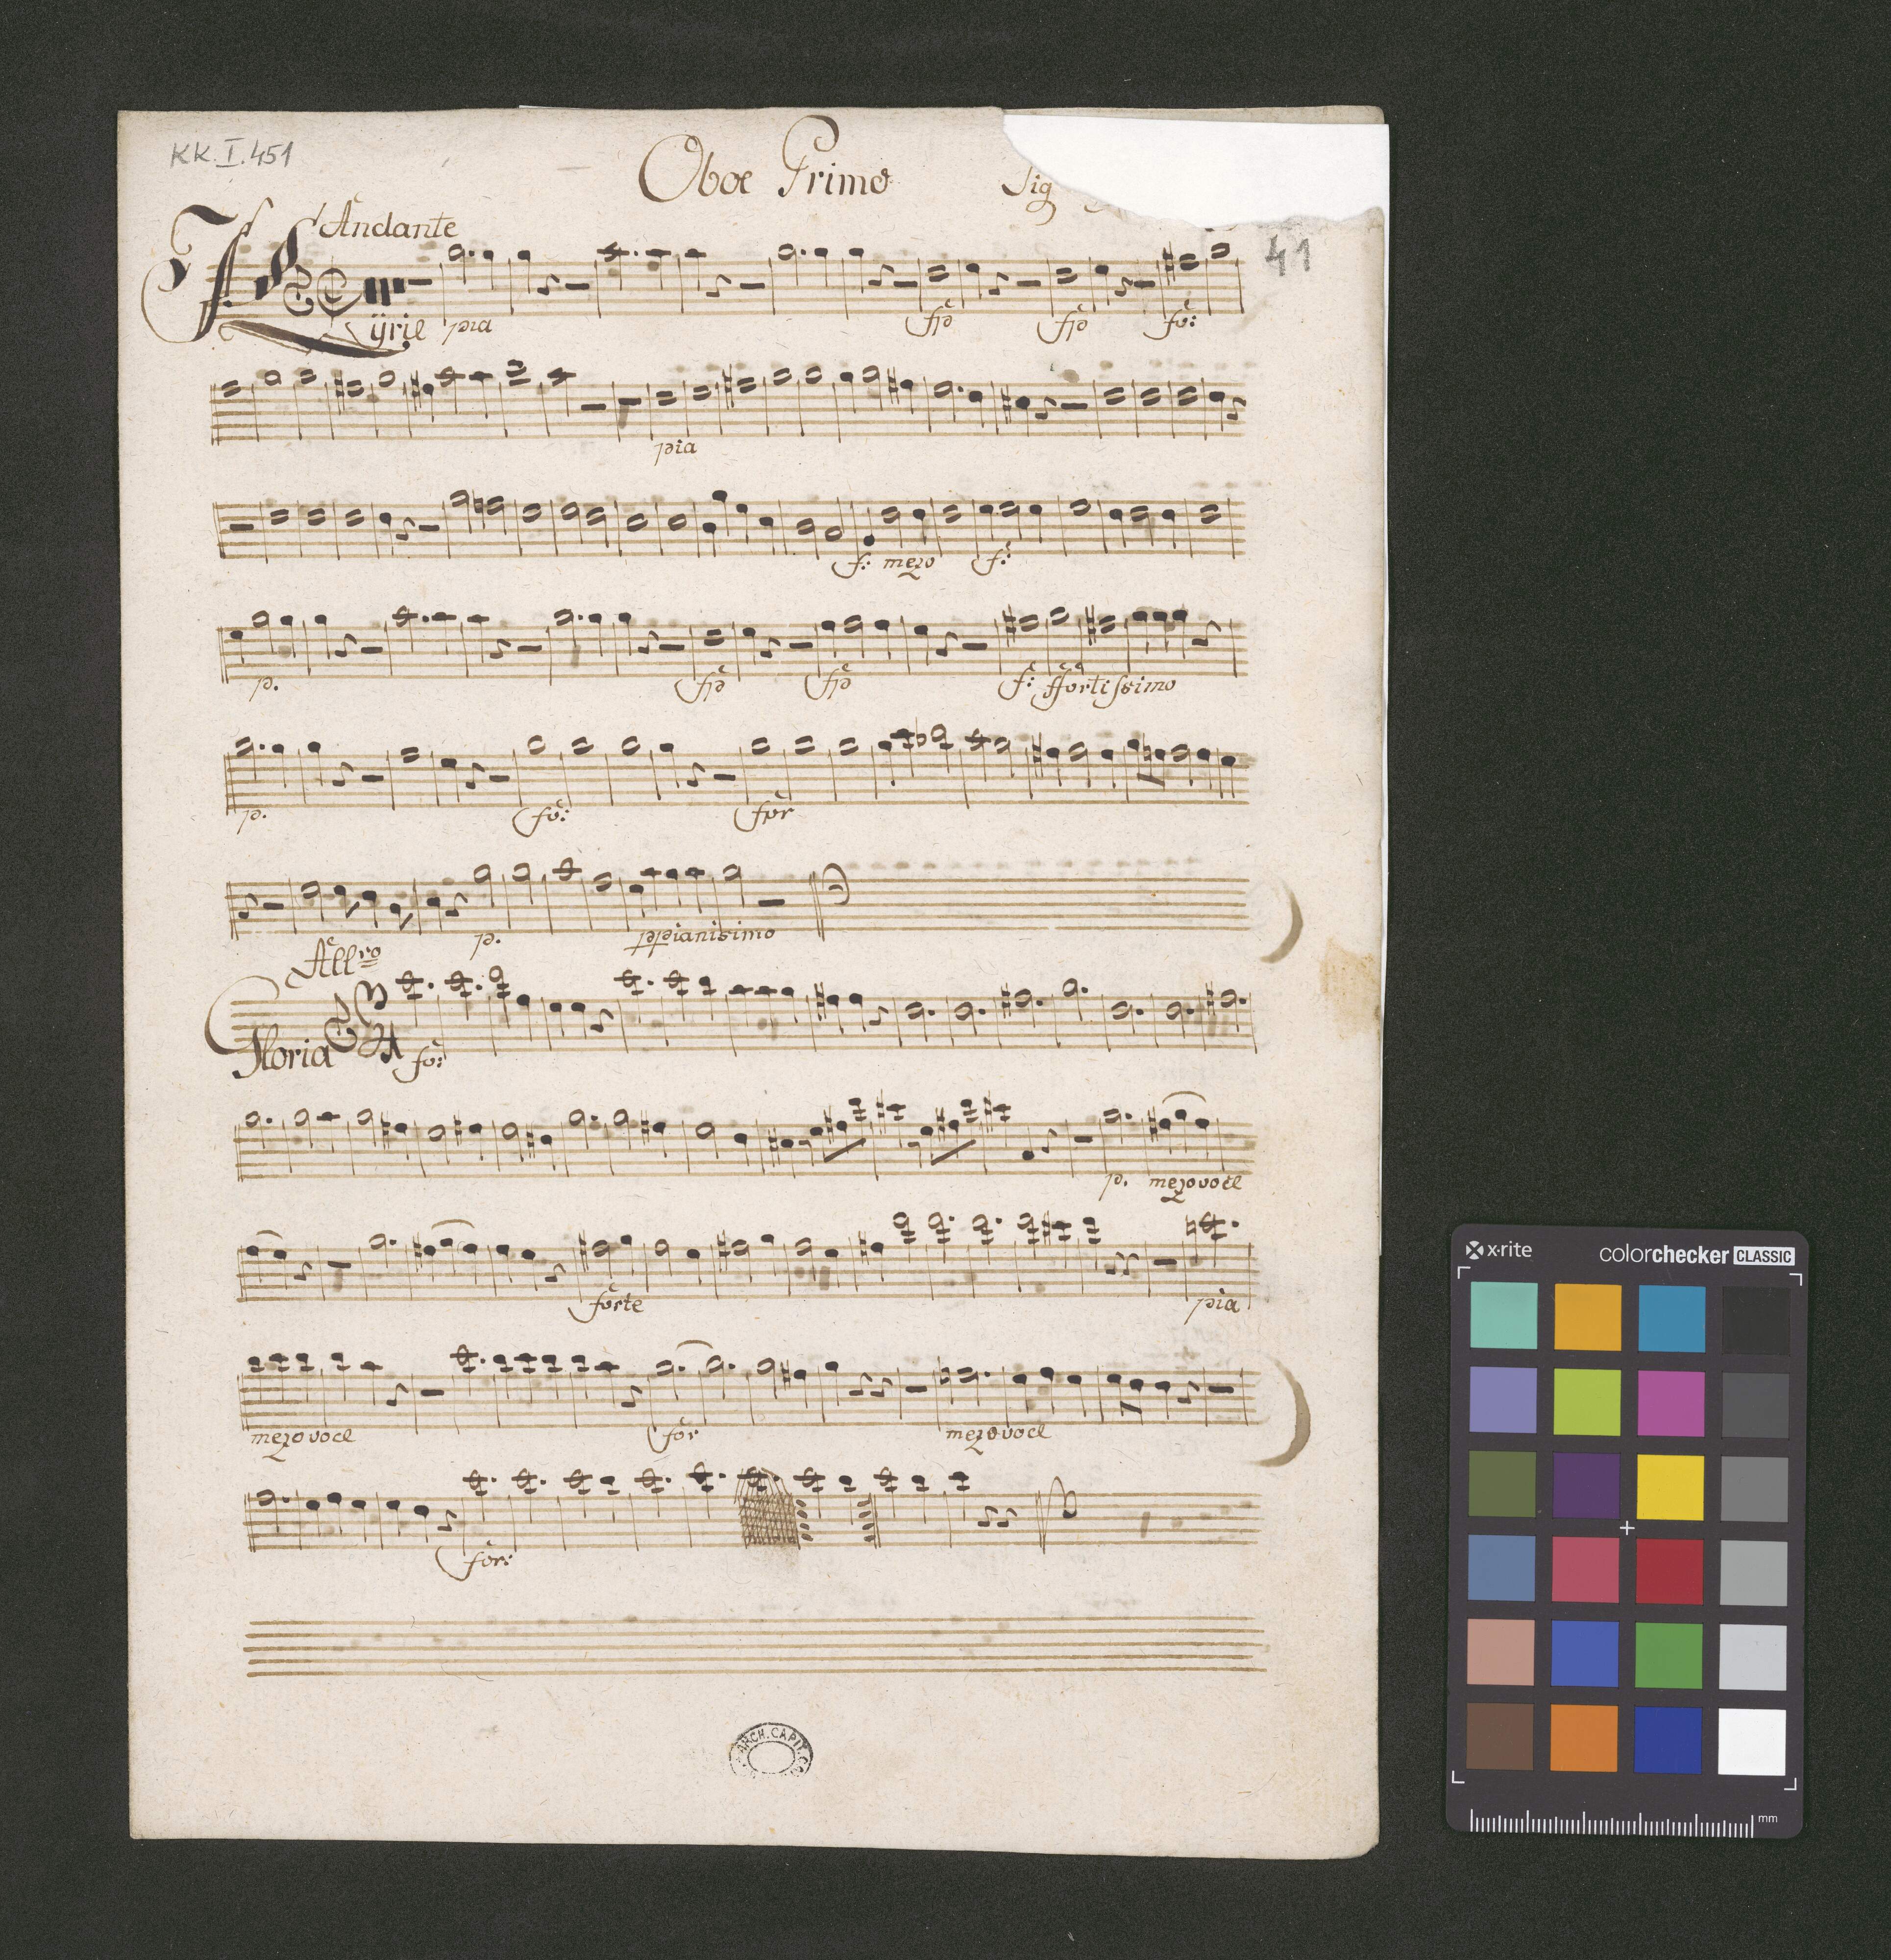 KK.I.451
Oboe Primo Sig
Andante
41
Kÿrie pia fp fp fo:
pia
f: mezo f:
p. fp fp f: ffortissimo
p. fo: for
p. ppianisimo
All.ro
Gloria 3 4 fo:
p. mezo voce
forte pia
mezo voce for mezo voce
for:
ARCH.CAPIT.
x-rite colorchecker CLASSIC
mm